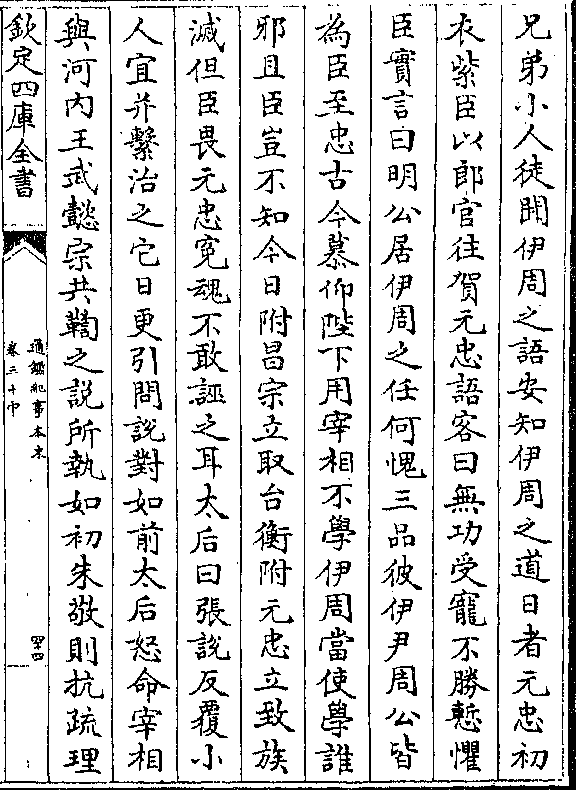 兄弟小人徒聞伊周之語安知伊周之道日者元忠初
衣紫臣以郎官往賀元忠語客曰無功受寵不勝慙懼
臣實言曰明公居伊周之任何愧三品彼伊尹周公皆
為臣至忠古今慕仰陛下用宰相不學伊周當使學誰
邪且臣豈不知今日附昌宗立取台衡附元忠立致族
滅但臣畏元忠寃魂不敢誣之耳太后曰張說反覆小
人宜并繫治之它日更引問說對如前太后怒命宰相
與河内王武懿宗共鞫之說所執如初朱敬則抗疏理
欽定四庫全書
通鑑紀事本末
卷三十中
四十四